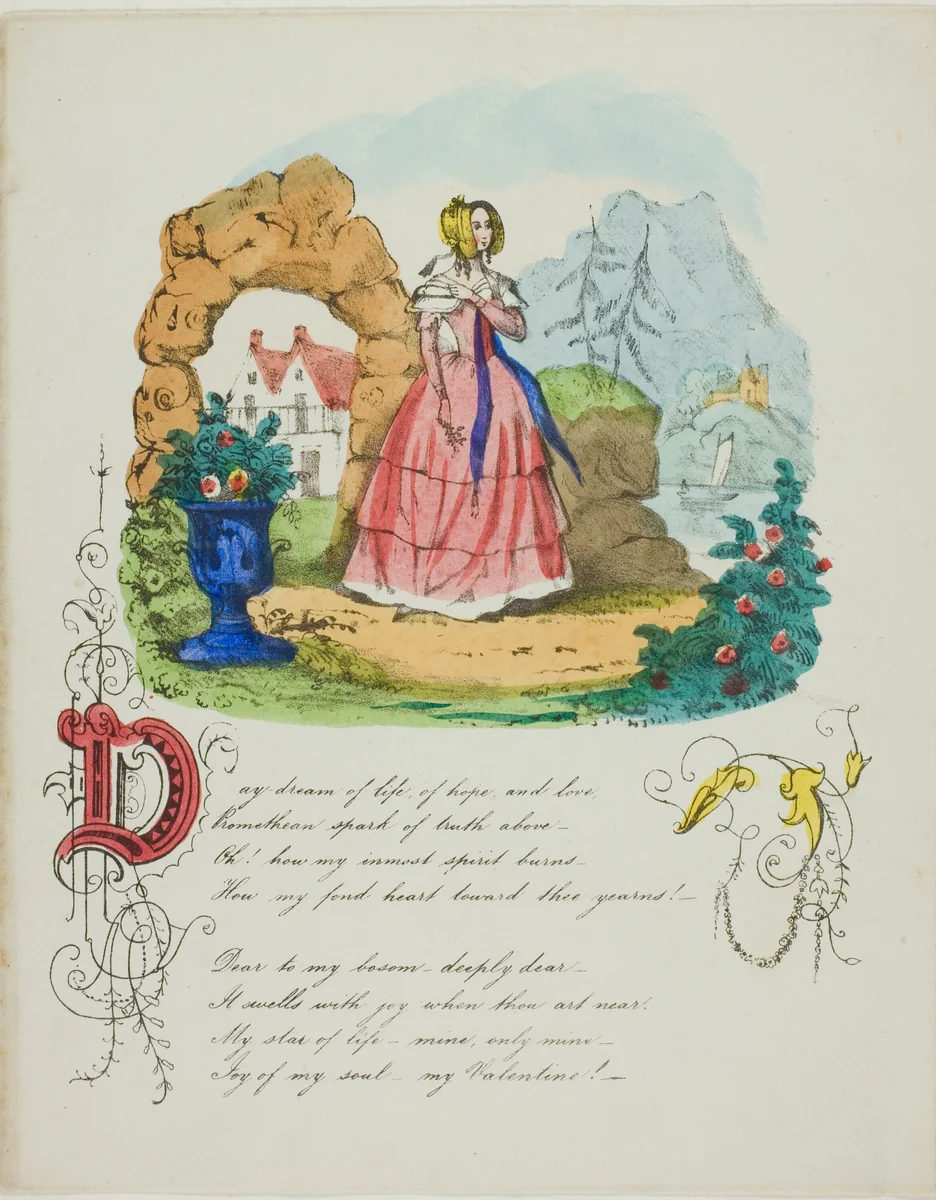 Day-dream of life, of hope, and love,
Promethean spark of truth above—
Oh! how my inmost spirit burns—
How my fond heart toward thee yearns!—
Dear to my bosom—deeply dear—
It swells with joy when thou art near.
My star of life—mine, only mine—
Joy of my soul—my Valentine!—